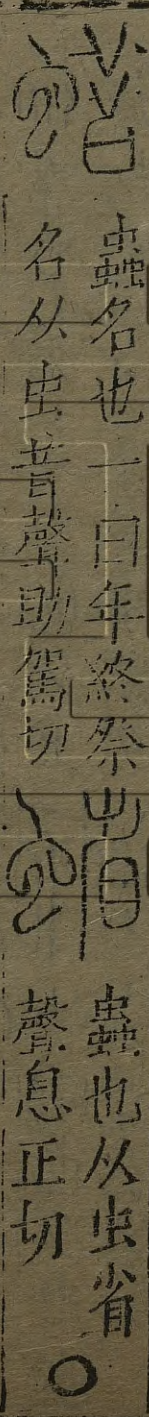 蜡
蟲名也一曰年終祭
名从虫昔聲助駕切
蟲也从虫省
聲息正切